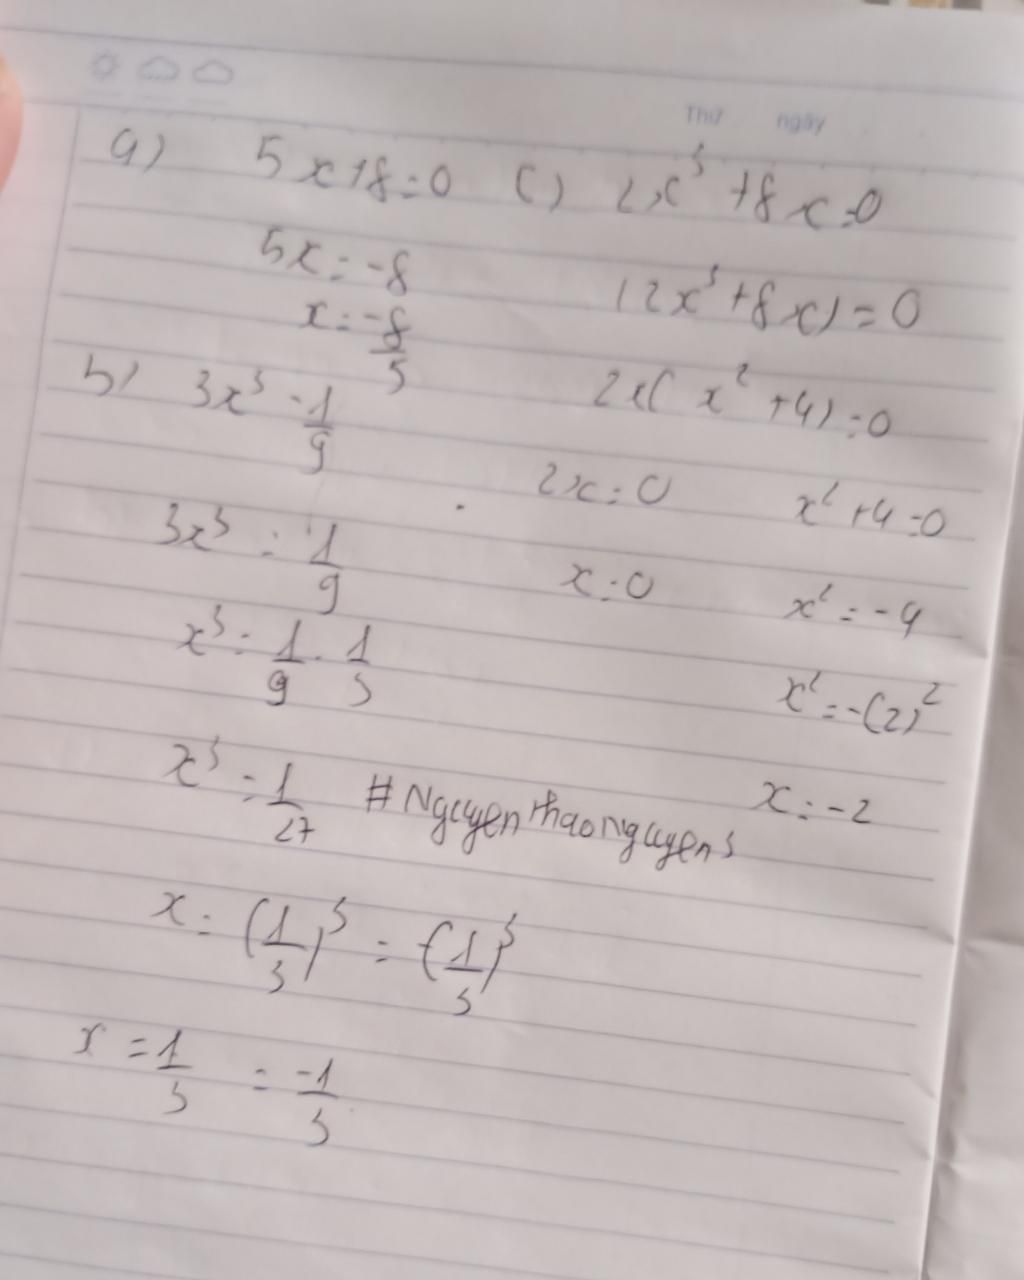 Thứ ngày
a) 5x+8=0
5x=-8
x=-8/5
b) 3x³-1/9
3x³=1/9
x³=1/9.1/3
x³=1/27
x=(1/3)³=(-1/3)³
x=1/3=-1/3
c) 2x³+8x=0
(2x³+8x)=0
2x(x²+4)=0
2x=0 x²+4=0
x=0 x²=-4
x²=-(2)²
x=-2
#Nguyenthaonguyen3